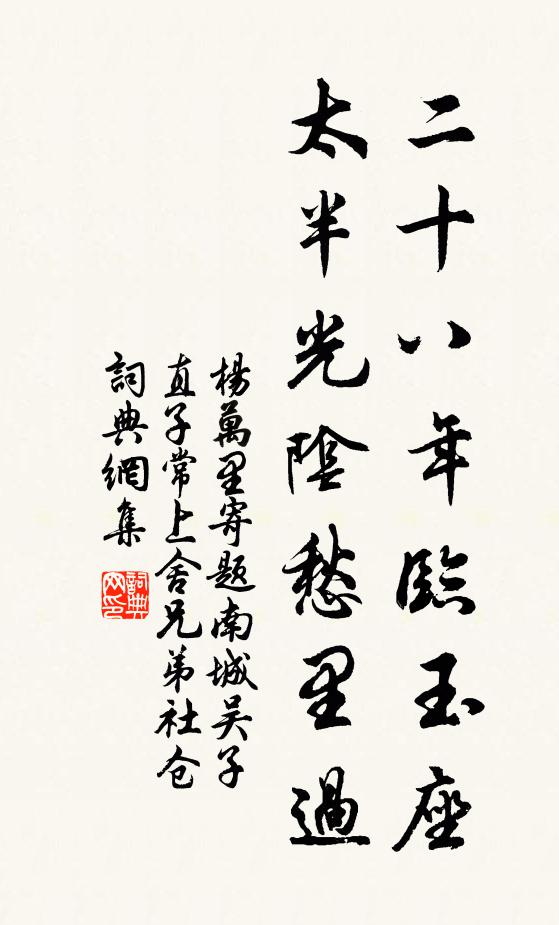 二十八年臨玉座
太半光陰愁里過
楊萬里寄題南城吴子
直子常上舍兄弟社仓
詞典網集
詞典
网印